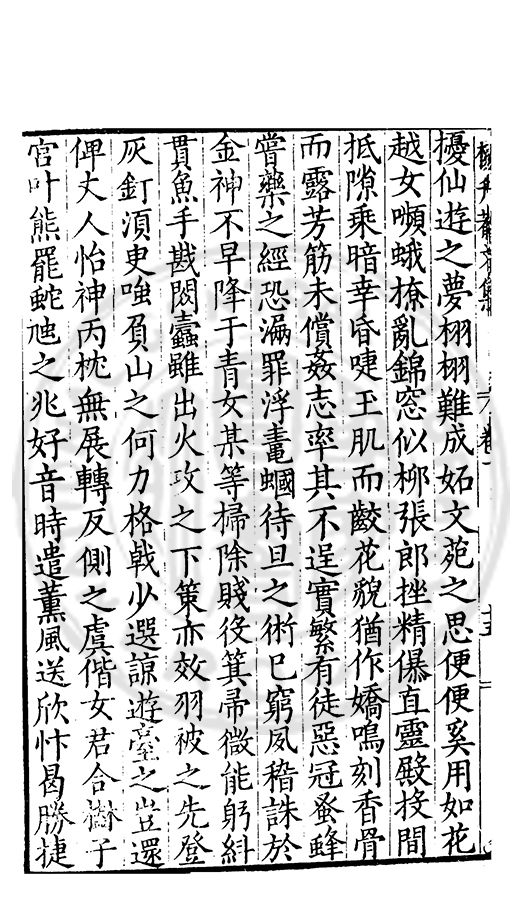 擾仙遊之夢栩栩難成妬文苑之思便便奚用如花
越女嚬蛾撩亂錦窓似栁張郎挫精㒍直靈殿投間
抵隙乘暗幸昏啑玉肌而齩花貌猶作嬌鳴刻香骨
而露芳筋未償姦志率其不逞實繁有徒惡冠蚤蜂
嘗藥之經恐漏罪浮䵷蟈待旦之術已窮夙稽誅於
金神不早降于青女某等掃除賤役箕帚微能躬紏
貫魚手戡閎蠹雖出火攻之下策亦效羽被之先登
灰釘湏吏嗤負山之何力格戟少選諒遊臺之豈還
俾丈人怡神丙枕無展轉反側之虞偕女君合樹子
宫叶熊羆虵虺之兆好音時遣薰風送欣忭曷勝捷